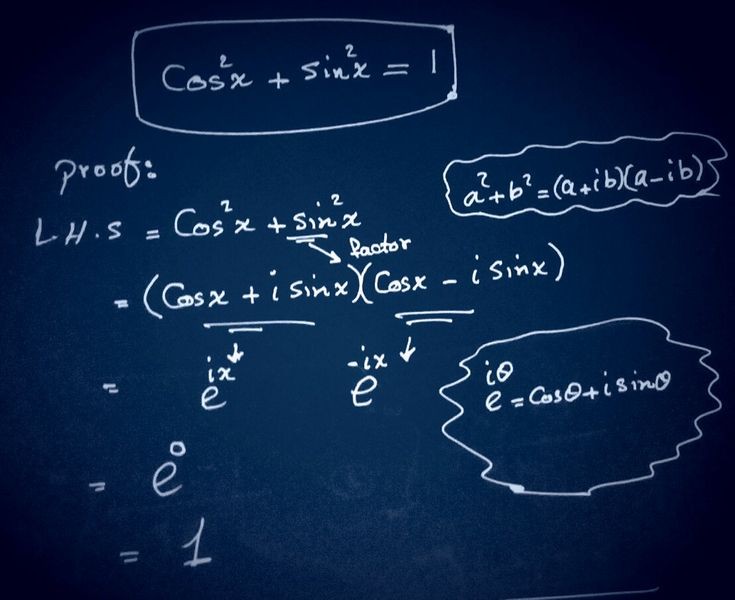 Cos²x + sin²x = 1
Proof:
a² + b² = (a+ib)(a-ib)
L.H.S = Cos²x + sin²x
factor
= (Cosx + i sinx)(Cosx - i sinx)
= e^ix e^-ix
e^iθ = Cosθ + i sinθ
= e^0
= 1